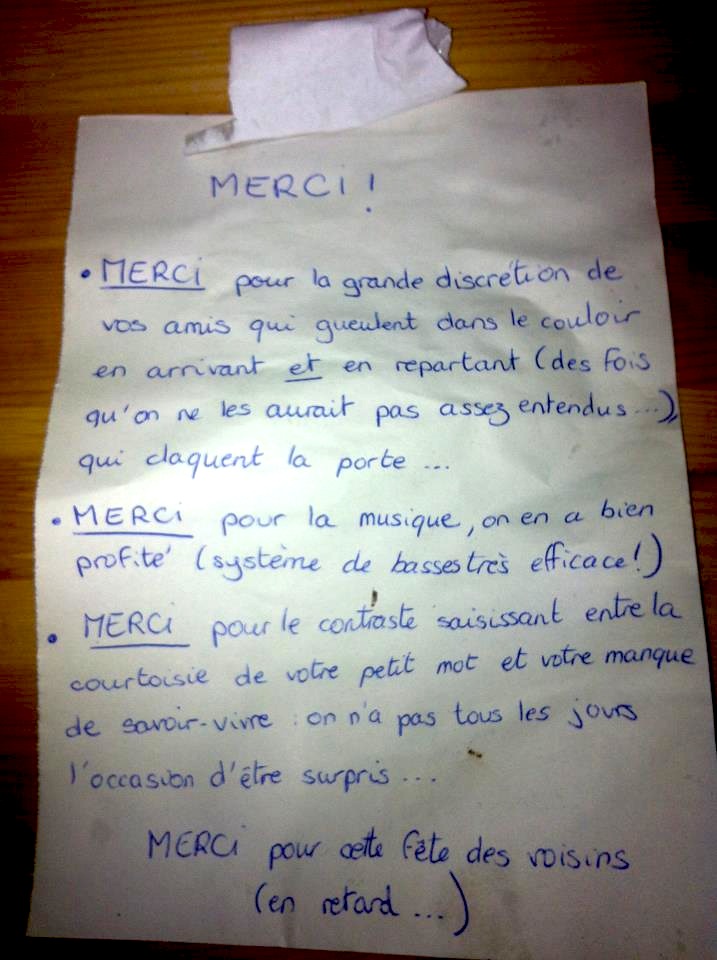 MERCI !
• MERCI pour la grande discrétion de
vos amis qui gueulent dans le couloir
en arrivant et en repartant (des fois
qu'on ne les aurait pas assez entendus...),
qui claquent la porte ...
• MERCI pour la musique, on en a bien
profité (système de basses très efficace!)
• MERCI pour le contraste saisissant entre la
courtoisie de votre petit mot et votre manque
de savoir-vivre : on n'a pas tous les jours
l'occasion d'être surpris ...
MERCI pour cette fête des voisins
(en retard ...)